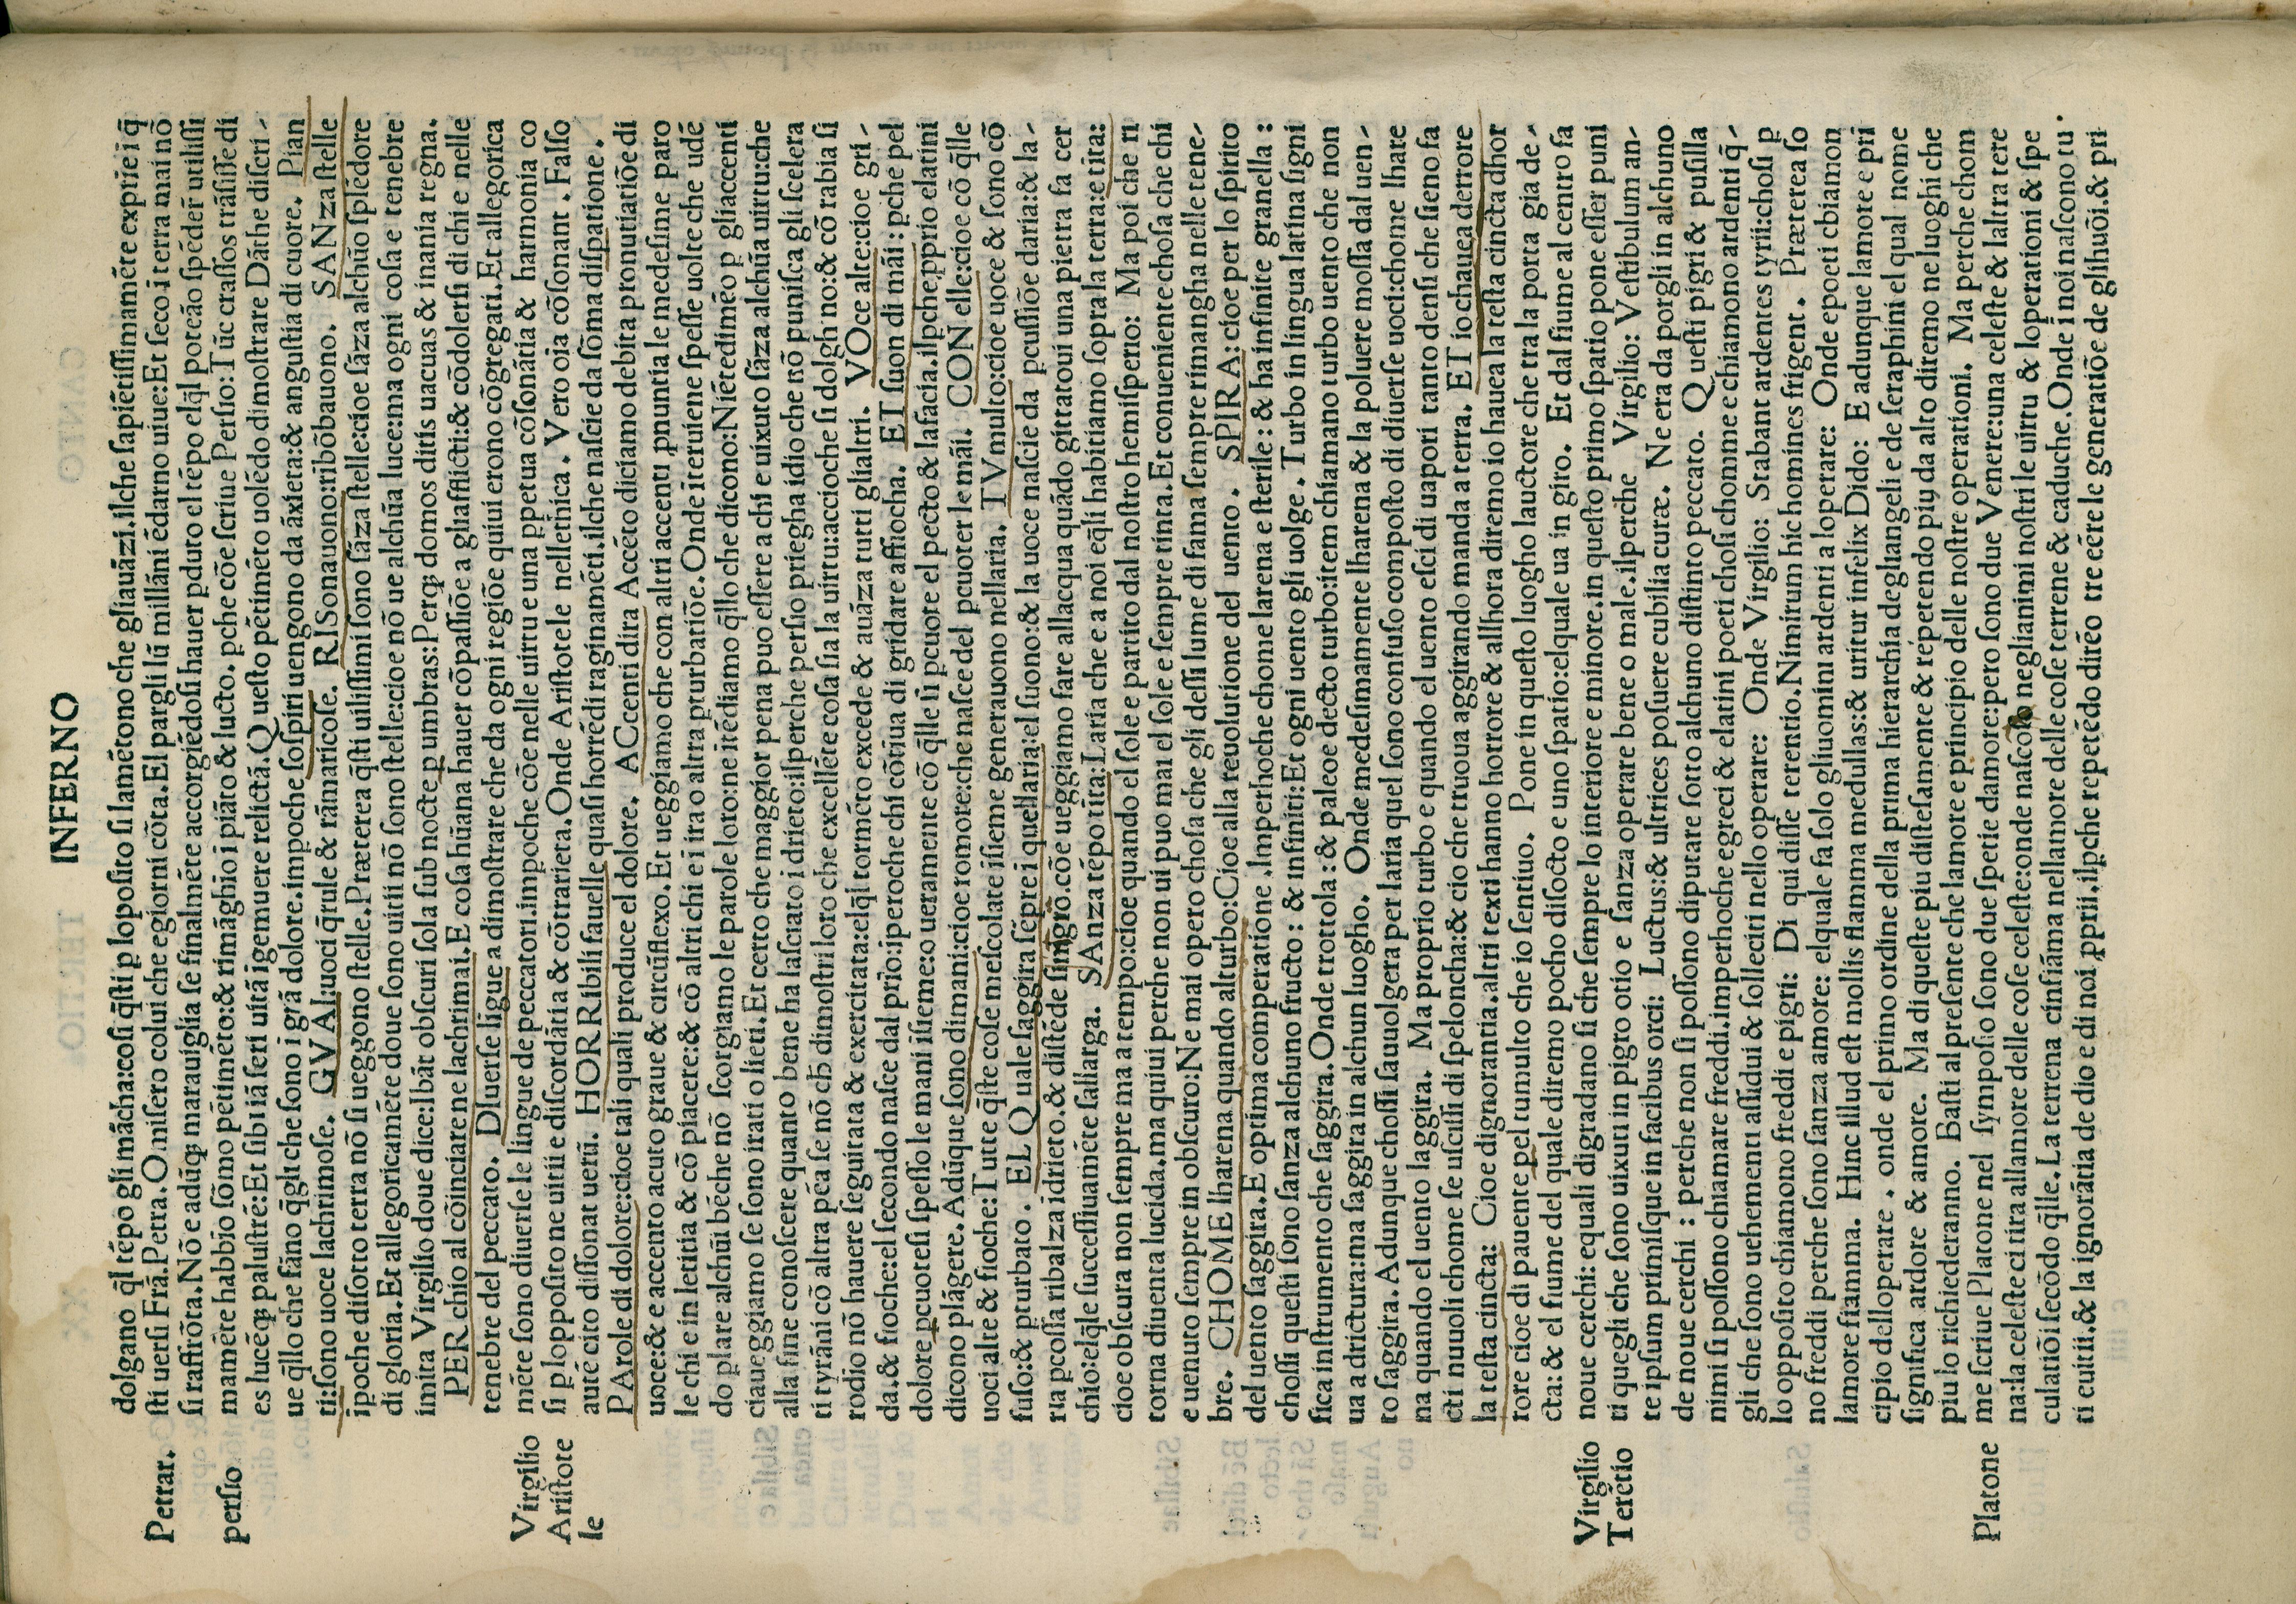 INFERNO
dolgano q̄l tépo gli mācha:cosi q̄sti p loposito si lamētono che gliauāzi.ilche sapiētissimamēte exprie i q̄
Petrar. sti uersi Frā.Petra. O misero colui che egiorni cōta.El pargli lū millāni ēdarno uiue:Et seco ī terra mai nō
si raffrōta.Nō e adūqȝ marauiglia se finalmēte accorgiēdosi hauer pduro el tēpo elq̄l poteāo spēdeř utilissi
persio mamēte habbio sōmo pētimēto:& rimāghio i piāto & lucto. pche cōe scriue Persio:Tūc crassos trāsisse di
es lucēqȝ palustrē:Et sibi iā seri uitā igemuere relictā.Questo pētimēto uolēdo dimostrare Dāthe discri-
ue q̄llo che fāno q̄gli che sono i grā dolore.impoche sospiri uengono da āxiera:& angustia di cuore. Pian
ti:sono uoce lachrimose. GVAI:uoci q̄rule & rāmaricose. RISonauono:ribōbauono. SANza stelle
ipoche disotto terra nō si ueggono stelle.Præterea q̄sti uilissimi sono sāza stelle:cioe sāza alchūo splēdore
di gloria.Et allegoricamēte doue sono uitii nō sono stelle:cioe nō ue alchūa luce:ma ogni cosa e tenebre
imita Virgilio doue dice:Ibāt obscuri sola sub nocte p umbras:Perqȝ domos ditis uacuas & inania regna.
PER chio al cōinciare ne lachrimai.E cosa hūana hauer cōpassiōe a gliafflicti:& cōdolersi di chi e nelle
tenebre del peccato. DIuerse līgue a dimostrare che da ogni regiōe quiui erono cōgregati.Et allegorica
Virgilio mēte sono diuerse le lingue de peccatori.impoche cōe nelle uirtu e una ppetua cōsonātia & harmonia co
Aristote si p lopposito ne uitii e discordātia & cōtrarieta.Onde Aristotele nellethica. Vero oīa cōsonant. Falso
le autē cito dissonat uerū. HORRibili fauelle quasi horrēdi raginamēti.ilche nascie da sōma dispatione.
PArole di dolore:cioe tali quali produce el dolore. ACcenti dira Accēto diciamo debita pronutiatiōe di
uoce:& e accento acuto graue & circūflexo.Et ueggiamo che con altri accenti pnuntia le medesime paro
le chi e in letitia & cō piacere:& cō altri chi e i ira o altra pturbatiōe.Onde iteruiene spesse uolte che udē
do plare alchūi bēche nō scorgiamo le parole loro:ne itēdiamo q̄llo che dicono:Niētedimēo p gliaccenti
ciaueggiamo se sono irati o lieti.Et certo che maggior pena puo essere a chi e uixuto sāza alchūa uirtu:che
alla fine conoscere quanto bene ha lasciato i drieto:ilperche persio priegha idio che nō punisca gli scelera
ti tyrāni cō altra pēa se nō ch̄ dimostri loro che excellēte cosa sia la uirtu:accioche si dolghino:& cō rabia si
rodio nō hauere seguitata & exercitata:elq̄l tormēto excede & auāza tutti glialtri. VOce alte:cioe gri-
da.& fioche:el secondo nasce dal prīo:iperoche chi cōtiua di gridare affiocha. ET suon di māi:pche pel
dolore pcuotesi spesso le mani isieme:o ueramente cō q̄lle si pcuote el pecto & lafacia.ilpche pprio elatini
dicono plāgere.Adūque sono dimani:cioe romore:che nasce del pcuoter le māi. CON elle:cioe cō q̄lle
uoci alte & fioche:Tutte q̄ste cose mescolare isieme generauono nellaria. TVmulto:cioe uoce & sono cō
fuso:& pturbato. EL Quale saggira sēpre i quellaria:el suono:& la uoce nascie da pcussiōe daria:& la-
ria pcossa ribalza idrieto.& distēde sīingiro.cōe ueggiamo fare allacqua quādo gittatoui una pietra fa cer
chio:elq̄le successiuamēte sallarga. SAnza tépo tīta:Laria che e a noi eq̄li habitiamo sopra la terra:e tīta:
cioe obscura non sempre ma a tempo:cioe quando el sole e partito dal nostro hemisperio: Ma poi che ri
torna diuenta lucida.ma quiui perche non ui puo mai el sole e sempre tinta.Et conueniente chosa che chi
e uenuto sempre in obscuro:Ne mai opero chosa che gli dessi lume di fama sempre rimangha nelle tene-
bre. CHOME lharena quando alturbo:Cioe alla reuolutione del uento. SPIRA:cioe per lo spirito
del uento saggira.E optima comperatione.Imperhoche chome larena e sterile:& ha infinite granella:
chossi questi sono sanza alchuno fructo:& infiniti:Et ogni uento gli uolge. Turbo in lingua latina signi
fica instrumento che saggira.Onde trottola:& paleo e decto turbo:item chiamano turbo uento che non
ua a drictura:ma saggira in alchun luogho. Onde medesimamente lharena & la poluere mossa dal uen-
to saggira.Adunque chossi sauuolgera per laria quel sono confuso composto di diuerse uoci:chome lhare
na quando el uento laggira. Ma proprio turbo e quando el uento esci di uapori tanto densi che sieno fa
cti nuuoli chome se uscissi di speloncha:& cio che truoua aggirando manda a terra. ET io chauea derrore
la testa cincta: Cioe dignorantia.altri texti hanno horrore & allhora diremo io hauea la testa cincta dhor
rore cioe di pauente pel tumulto che io sentiuo. Pone in questo luogho lauctore che tra la porta gia de-
cta:& el fiume del quale diremo pocho disocto e uno spatio:elquale ua in giro. Et dal fiume al centro fa
Virgilio noue cerchi:equali digradano si che sempre lo interiore e minore.in questo primo spatio pone esser puni
Terētio ti quegli che sono uixuti in pigro otio e sanza operare bene o male.ilperche Virgilio: Vestibulum an-
te ipsum primisque in facibus orci: Luctus:& ultrices posuere cubilia curæ. Ne era da porgli in alchuno
de noue cerchi:perche non si possono diputare sotto alchuno distinto peccato. Questi pigri & pusilla
nimi si possono chiamare freddi.imperhoche egreci & elatini poeti chosi chomme e chiamono ardenti q̄-
gli che sono uehementi assidui & solleciti nello operare: Onde Virgilio: Stabant ardentes tyrii:chosi p
lo opposito chiamono freddi e pigri: Di qui disse terentio.Nimirum hic homines frigent. Præterea so
no freddi perche sono sanza amore: elquale fa solo gliuomini ardenti a loperare: Onde epoeti chiamon
lamore fiamma. Hinc illud est mollis flamma medullas:& uritur infelix Dido: E adunque lamore e pri
cipio delloperare. onde el primo ordine della prima hierarchia deglangeli e de seraphini el qual nome
significa ardore & amore. Ma di queste piu distesamente & repetendo piu da alto diremo ne luoghi che
piu lo richiederanno. Basti al presente che lamore e principio delle nostre operationi. Ma perche chom
Platone me scriue Platone nel symposio sono due spetie damore:pero sono due Venere:una celeste & laltra tere
na:la celeste ci tira allamore delle cose celeste:onde nascono neglianimi nostri le uirtu & loperationi & spe
culatiōi secōdo q̄lle. La terrena cinfiāma nellamore delle cose terrene & caduche.Onde ī noi nascono tu-
ti euitii.& la ignorātia de dio e di noi pprii.ilpche repetēdo dirēo tre cēre le generatiōe de glihuōi.& pri